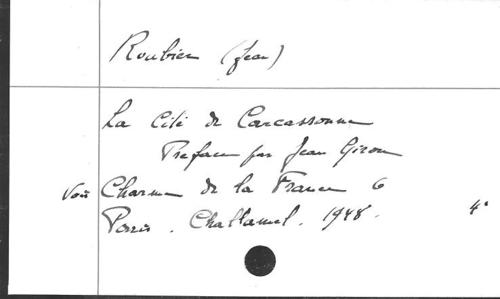 Roubier (Jean)
La Cité de Carcassonne
Preface par Jean Girou
Voir Charme de la France 6
Paris. Challamel. 1948. 4°